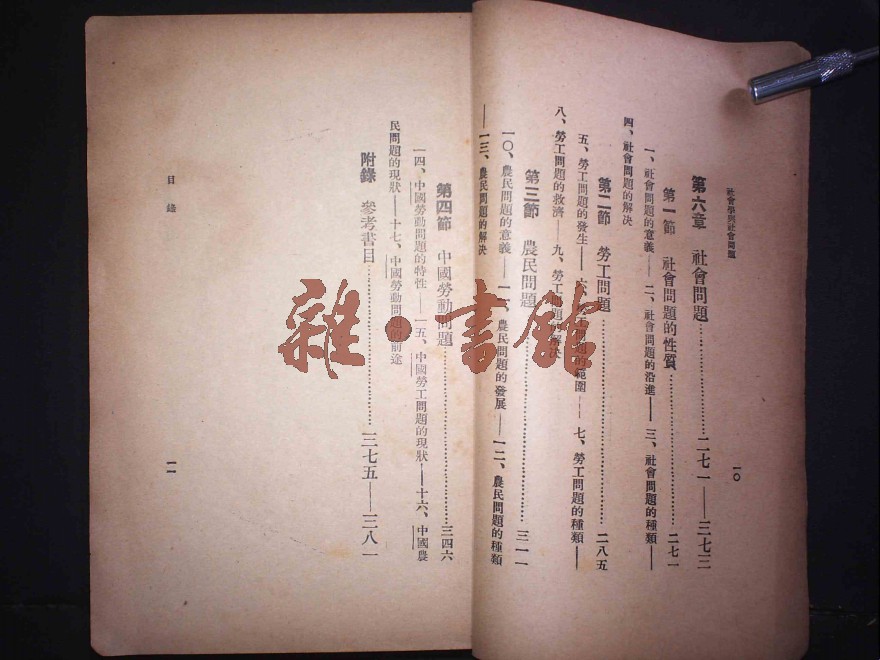 社會學與社會問題
一〇
第六章 社會問題……………二七一——三七三
第一節 社會問題的性質……………二七一
一、社會問題的意義——二、社會問題的沿進——三、社會問題的種類——
四、社會問題的解決
第二節 勞工問題……………二八五
五、勞工問題的發生——六、勞工問題的範圍——七、勞工問題的種類——
八、勞工問題的救濟——九、勞工問題的解決
第三節 農民問題……………三一一
一〇、農民問題的意義——一一、農民問題的發展——一二、農民問題的種類
——一三、農民問題的解決
第四節 中國勞動問題……………三四六
一四、中國勞動問題的特性——一五、中國勞工問題的現狀——十六、中國農
民問題的現狀——十七、中國勞動問題的前途
附錄 參考書目……………三七五——三八一
目錄
一一
雜·書館